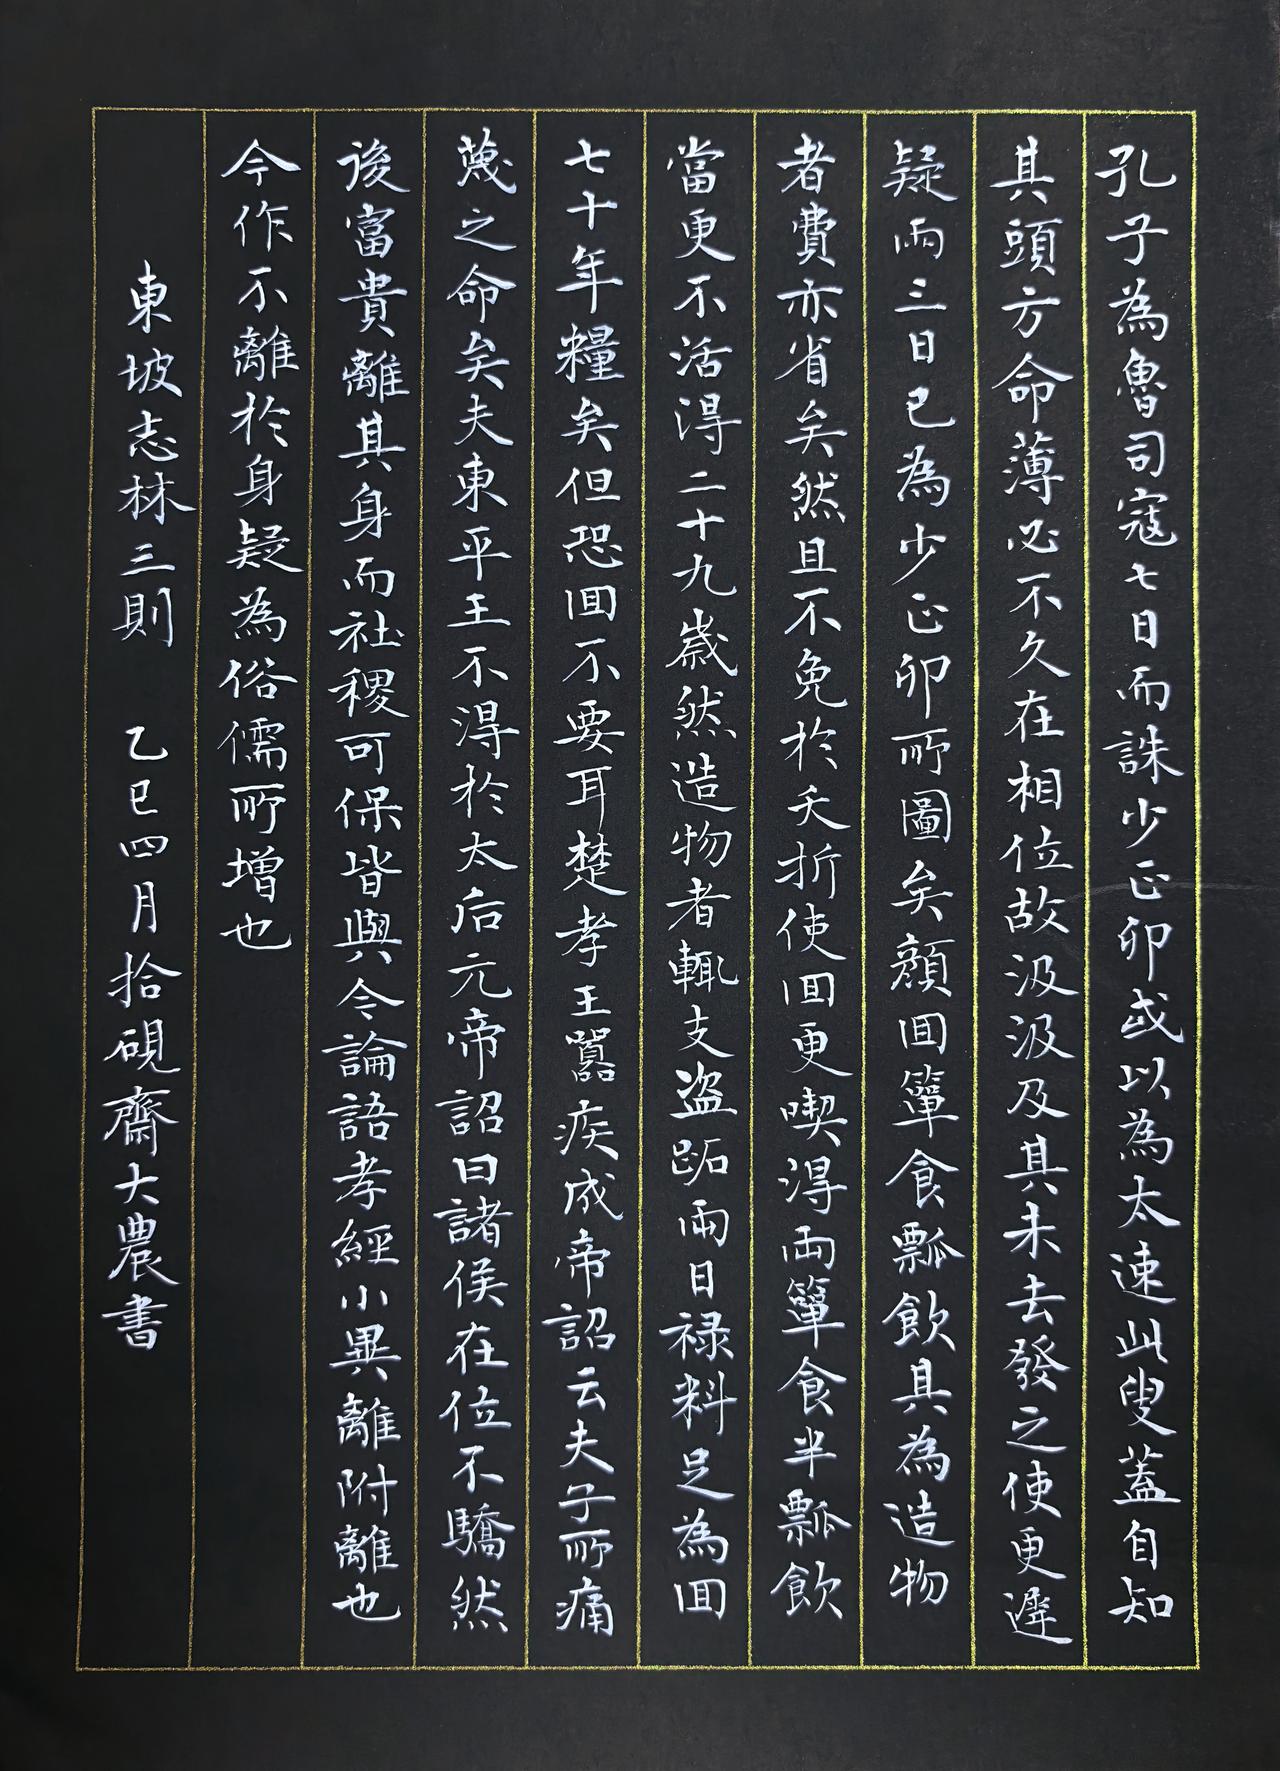 孔子為魯司寇七日而誅少正卯或以為太速此叟蓋自知
其頭方命薄必不久在相位故汲汲及其未去發之使更遲
疑兩三日已為少正卯所圖矣顏回簞食瓢飲其為造物
者費亦省矣然且不免於夭折使回更喫得兩簞食半瓢飲
當更不活得二十九歲然造物者輒支盜跖兩日祿料足為回
七十年糧矣但恐回不要耳楚孝王囂疾成帝詔云夫子所痛
蔑之命矣夫東平王不得於太后元帝詔曰諸侯在位不驕然
後富貴離其身而社稷可保皆與今論語孝經小異離附離也
今作不離於身疑為俗儒所增也
東坡志林三則 乙巳四月拾硯齋大農書